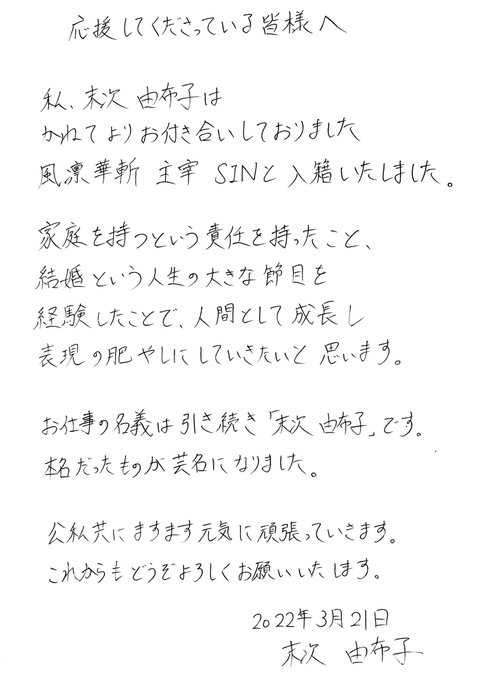 応援してくださっている皆様へ
私、末次 由布子は
かねてよりお付き合いしておりました
風凛華斬 主宰 SINと入籍いたしました。
家庭を持つという責任を持ったこと、
結婚という人生の大きな節目を
経験したことで、人間として成長し
表現の肥やしにしていきたいと思います。
お仕事の名義は引き続き「末次 由布子」です。
本名だったものが芸名になりました。
公私共にますます元気に頑張っていきます。
これからもどうぞよろしくお願いいたします。
2022年3月21日
末次 由布子